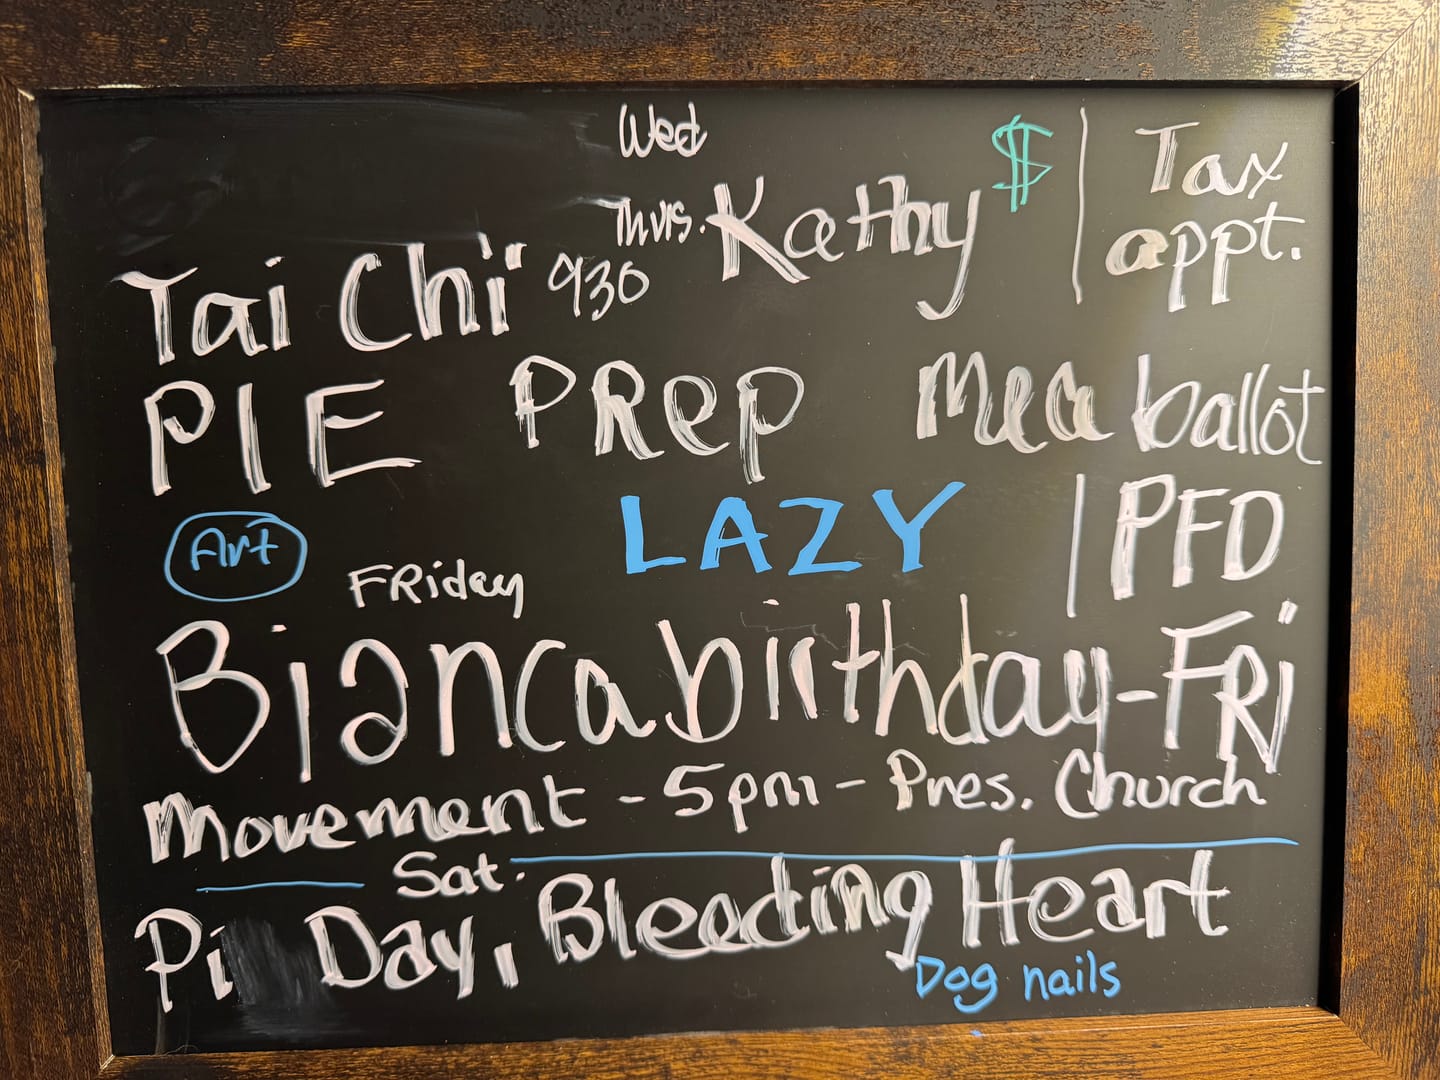 Wed
Thurs. Kathy $ | Tax appt.
Tai Chi 930
PIE PRep Mea ballot
Art LAZY | PFD
FRiday
Bianca birthday - FRi
Movement - 5pm - Pres. Church
Sat.
Pi Day, Bleeding Heart
Dog nails